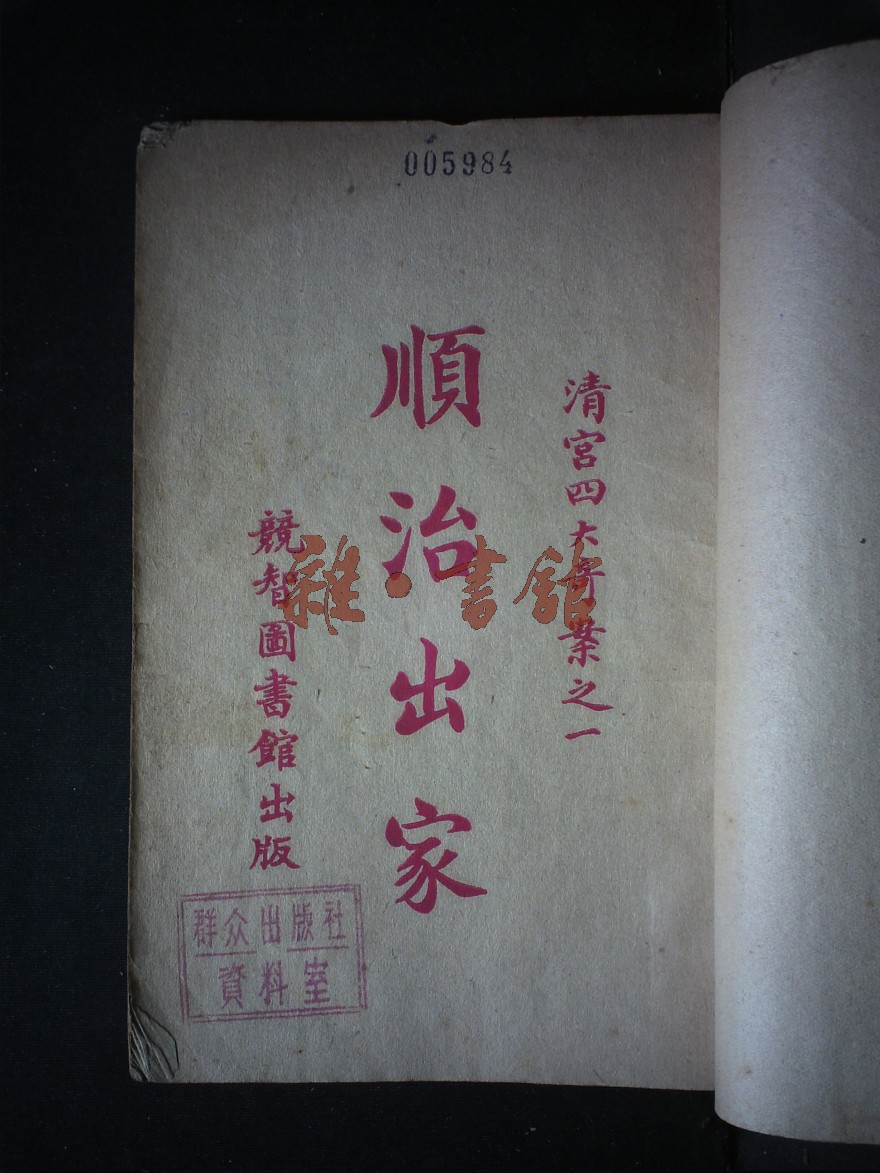 005984
清宮四大奇案之一
順治出家
競智圖書館出版
雜·書館
群众出版社
資料室